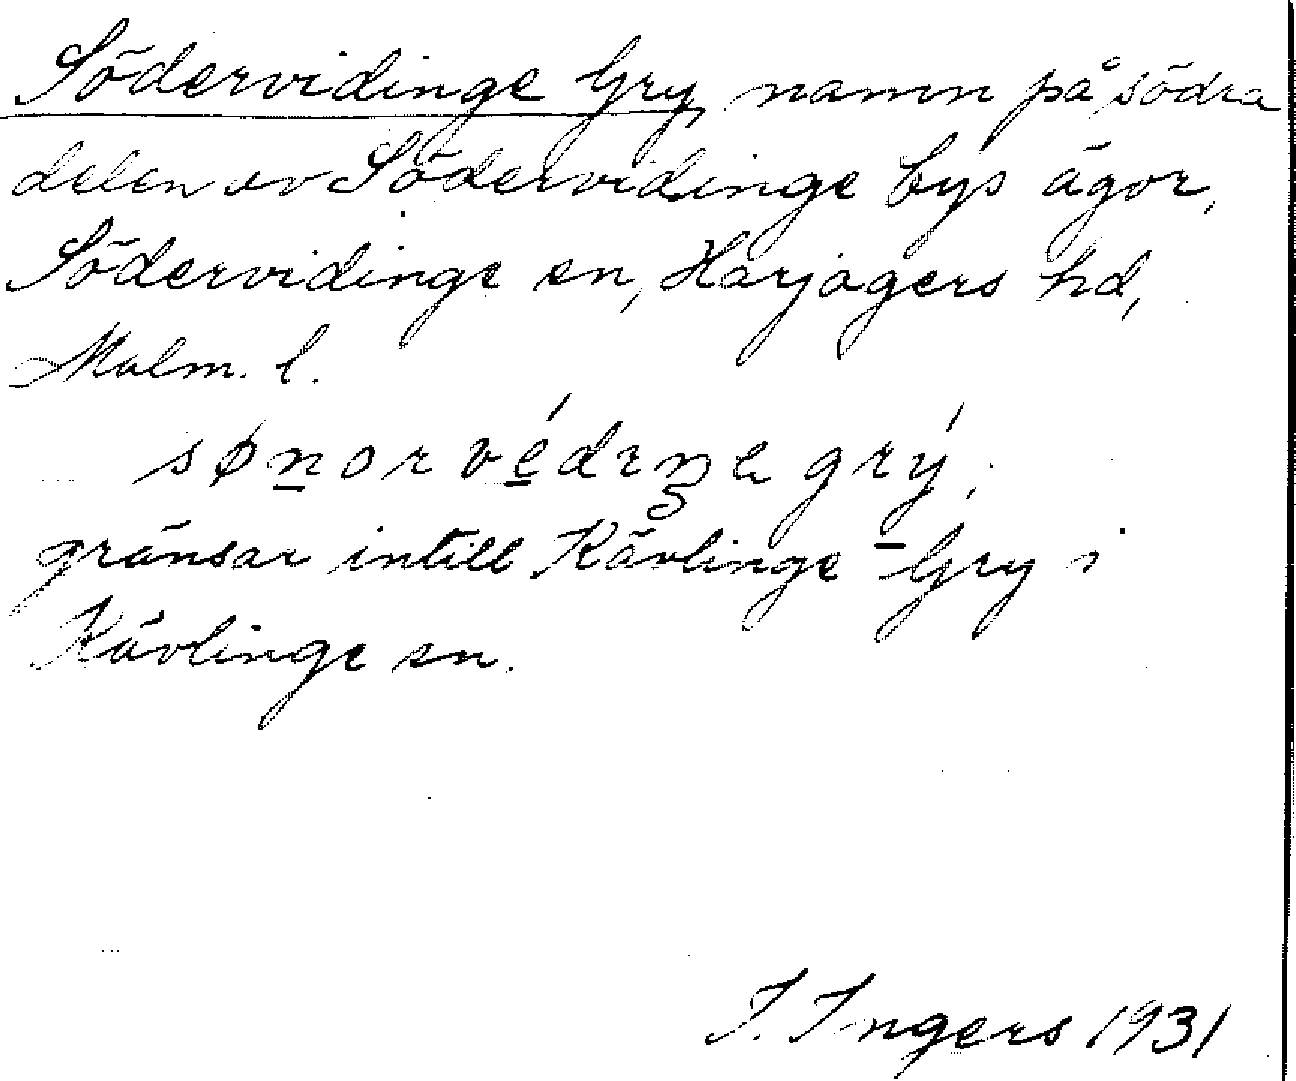 Södervidinge Gry, namn på södra
delen av Södervidinge bys ägor,
Södervidinge sn, Harjagers hd,
Malm. l.
gränsar intill Kävlinge-Gry i
Kävlinge sn.
I. Ingers 1931